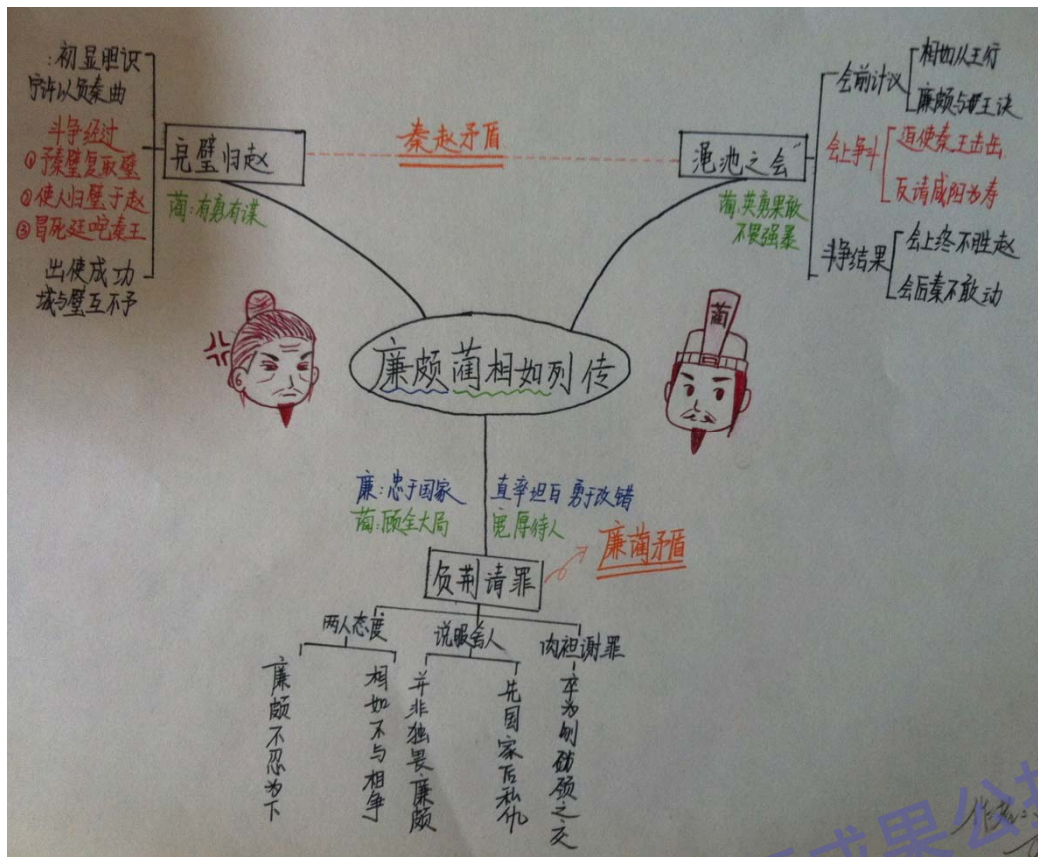 :初显胆识
宁许以负秦曲
斗争经过
①予秦璧复取璧
②使人归璧于赵
③冒死廷叱秦王
出使成功
城与璧互不予
完璧归赵
蔺:有勇有谋
秦赵矛盾
渑池之会
蔺:英勇果敢
不畏强暴
会前计议
相如从王行
廉颇与王诀
会上争斗
迫使秦王击缶
反请咸阳为寿
斗争结果
会上终不胜赵
会后秦不敢动
蔺
廉颇蔺相如列传
廉:忠于国家 直率坦白 勇于改错
蔺:顾全大局 宽厚待人
负荆请罪
廉蔺矛盾
两人态度
廉颇不忍为下
相如不与相争
说服舍人
并非独畏廉颇
先国家后私仇
肉袒谢罪
卒为刎
颈之交
成果公